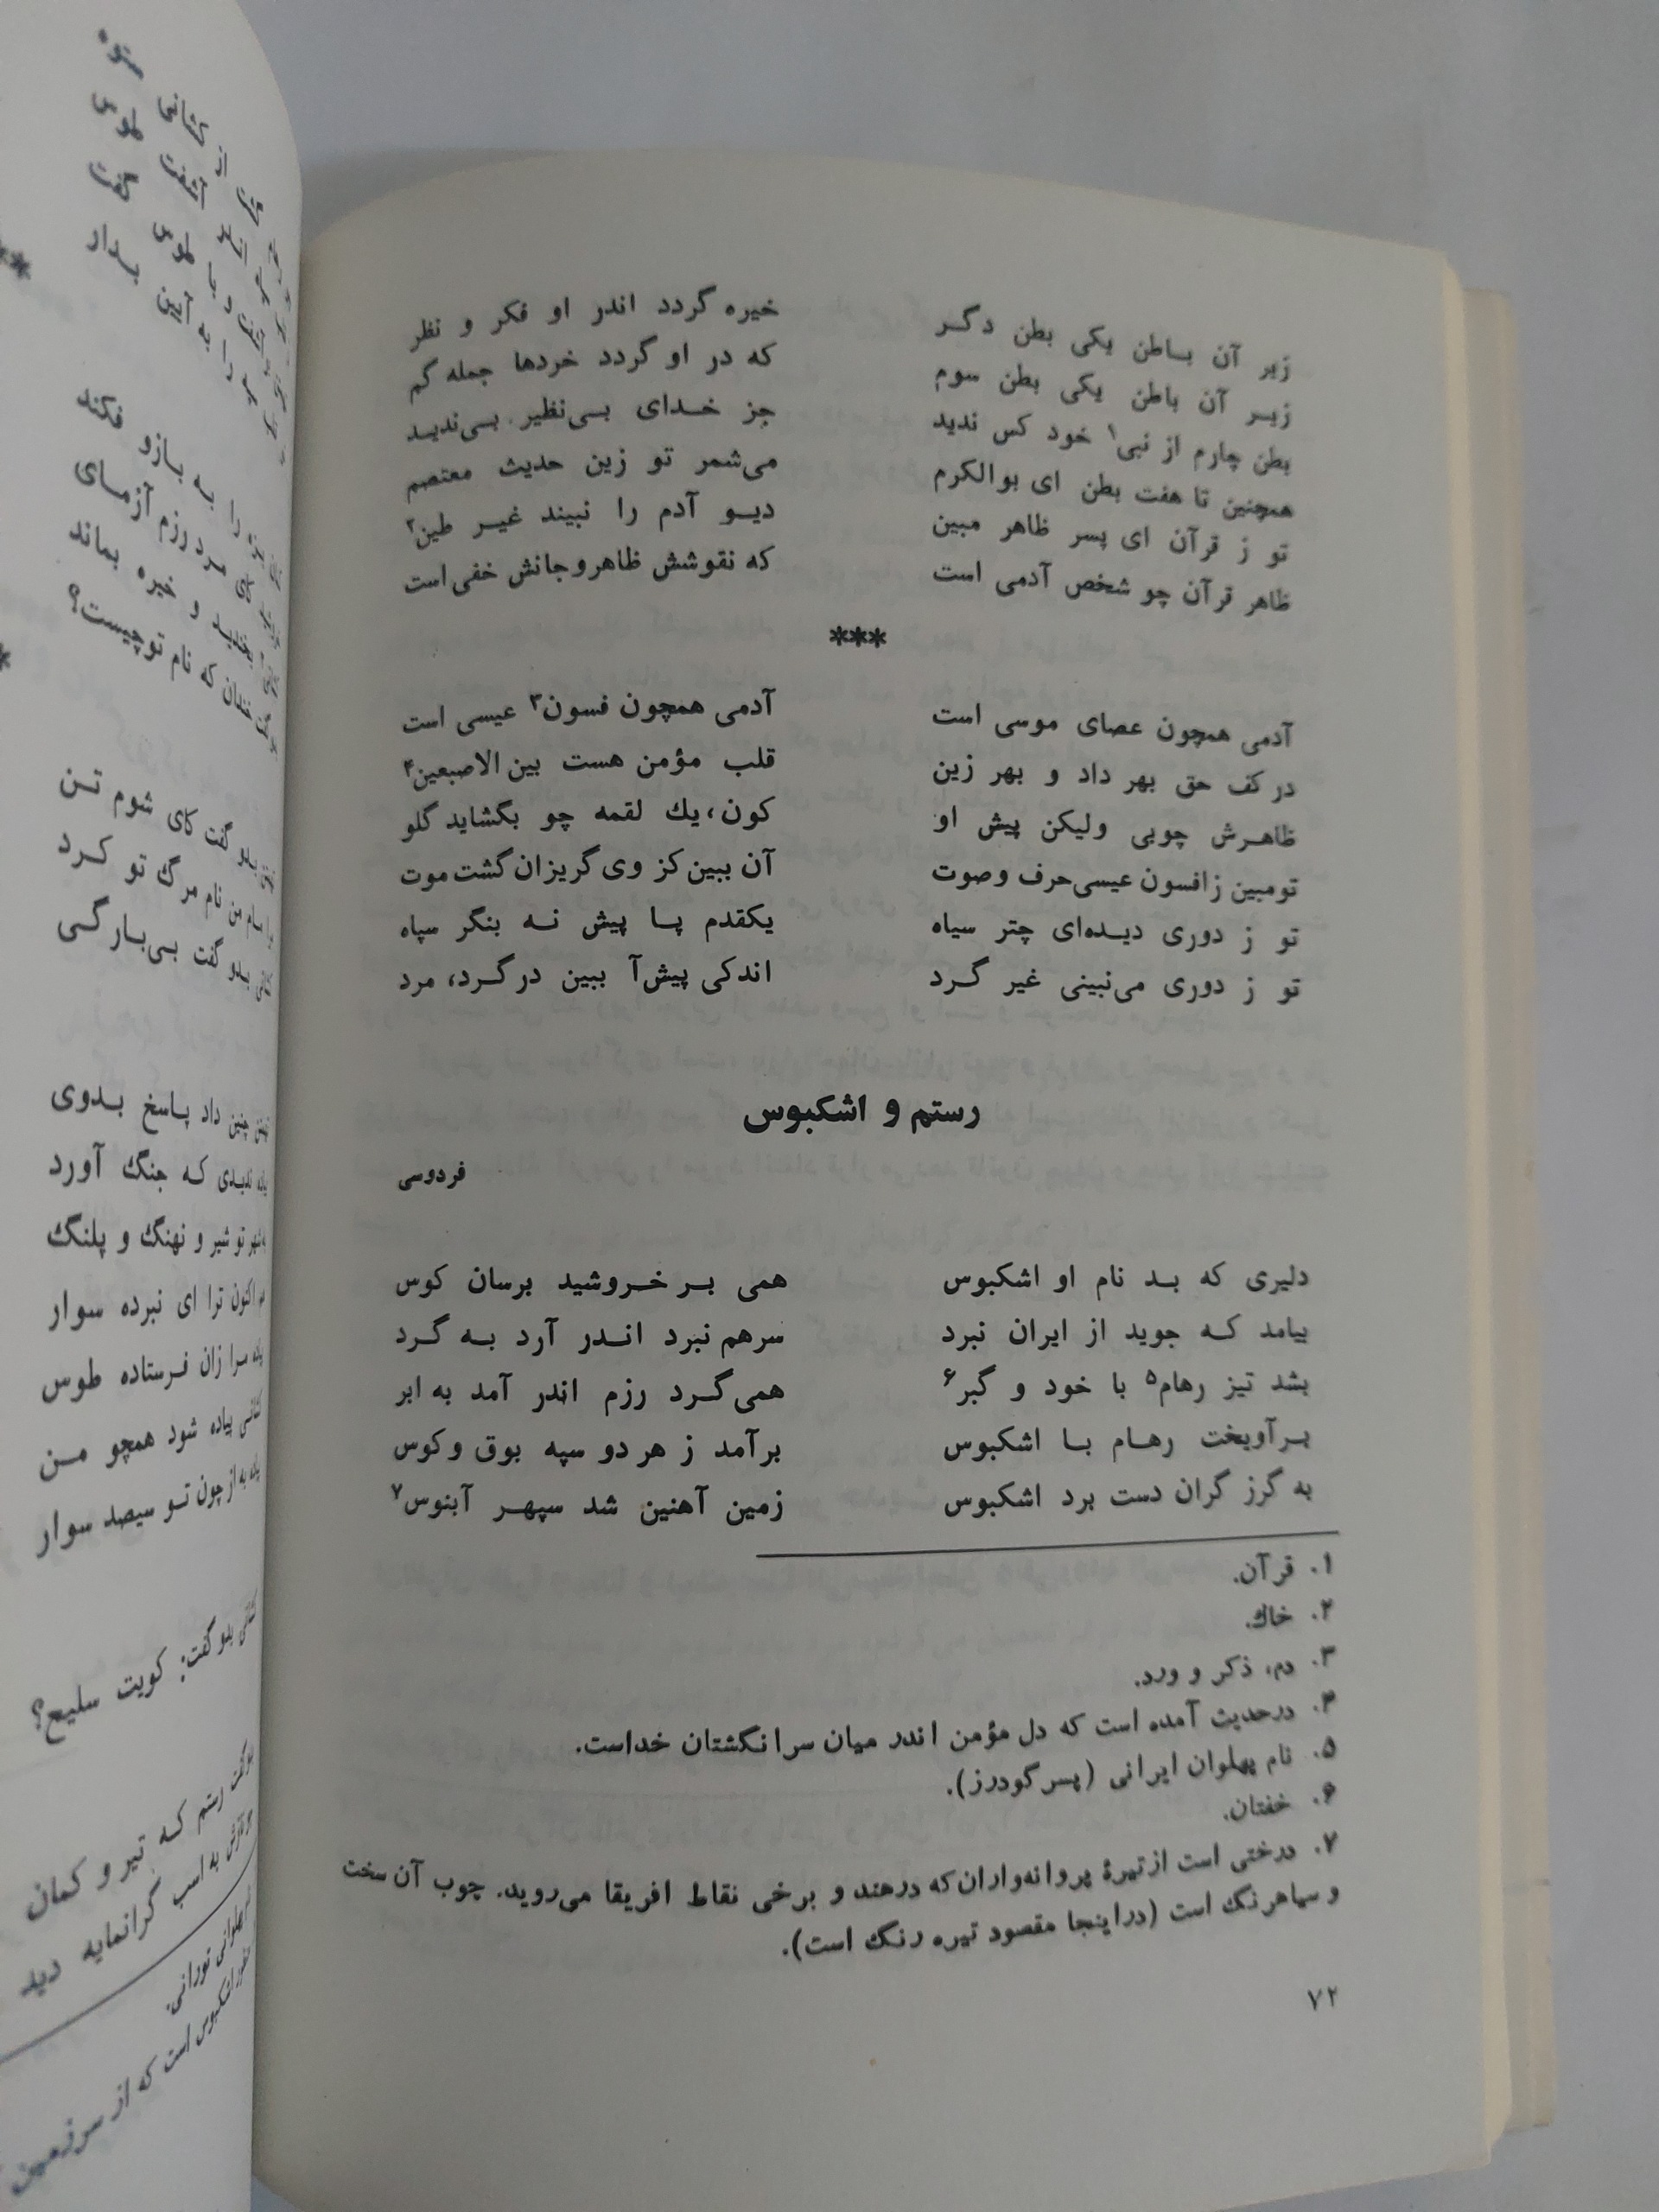 زیر آن باطن یکی بطن دگر خیره گردد اندر او فکر و نظر
زیر آن باطن یکی بطن سوم که در او گردد خردها جمله گم
بطن چارم از نبی۱ خود کس ندید جز خدای بی‌نظیر بی‌ندید
همچنین تا هفت بطن ای بوالکرم می‌شمر تو زین حدیث معتصم
تو ز قرآن ای پسر ظاهر مبین دیو آدم را نبیند غیر طین۲
ظاهر قرآن چو شخص آدمی است که نقوشش ظاهر و جانش خفی است
***
آدمی همچون عصای موسی است آدمی همچون فسون۳ عیسی است
در کف حق بهر داد و بهر زین قلب مؤمن هست بین الاصبعین۴
ظاهرش چوبی ولیکن پیش او کون، یك لقمه چو بگشاید گلو
تو مبین ز افسون عیسی حرف و صوت آن ببین کز وی گریزان گشت موت
تو ز دوری دیده‌ای چتر سیاه یکقدم پا پیش نه بنگر سپاه
تو ز دوری می‌نبینی غیر گرد اندکی پیش آ ببین در گرد، مرد
رستم و اشکبوس
فردوسی
دلیری که بد نام او اشکبوس همی بر خروشید برسان کوس
بیامد که جوید از ایران نبرد سر هم نبرد اندر آرد به گرد
بشد تیز رهام۵ با خود و گبر۶ همی گرد رزم اندر آمد به ابر
برآویخت رهام با اشکبوس برآمد ز هر دو سپه بوق و کوس
به گرز گران دست برد اشکبوس زمین آهنین شد سپهر آبنوس۷
۱. قرآن.
۲. خاك.
۳. دم، ذکر و ورد.
۴. درحدیث آمده است که دل مؤمن اندر میان سرانگشتان خداست.
۵. نام پهلوان ایرانی (پسر گودرز).
۶. خفتان.
۷. درختی است از تیرهٔ پروانه‌واران که درهند و برخی نقاط افریقا می‌روید. چوب آن سخت
و سیاهرنگ است (در اینجا مقصود تیره رنگ است).
۷۲
کشانی ستوه
آشفت طوس
با طوس گفت
را به آیین بدار
را به بازو فکند
مرد رزم آزمای
بخندید و خیره بماند
خندان که نام تو چیست؟
بدو گفت کای شوم تن
مرا مام من نام مرگ تو کرد
بدو گفت بی‌بارگی
چنین داد پاسخ بدوی
ندیدی که جنگ آورد
شهر تو شیر و نهنگ و پلنگ
هم اکنون ترا ای نبرده سوار
پیاده مرا زان فرستاده طوس
کشانی پیاده شود همچو من
پیاده به از چون تو سیصد سوار
کشانی بدو گفت: کویت سلیح؟
بدو گفت رستم که تیر و کمان
به اسب گرانمایه دید
پهلوانی تورانی.
اشکبوس است که از سرزمین